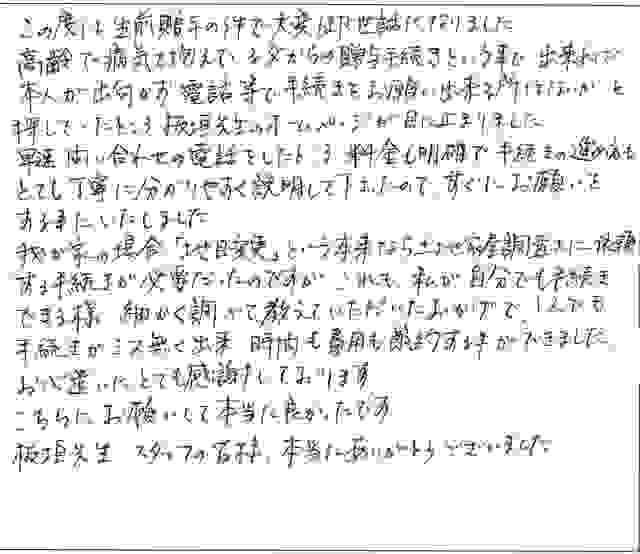 この度は生前贈与の件で大変お世話になりました
高齢で病気を抱えている父からの贈与手続きという事で 出来れば
本人が出向かず 電話等で手続きをお願い出来る所はないかと
探していたところ 板垣先生のホームページが目に止まりました
早速 問い合わせの電話をしたところ 料金も明確で 手続きの進め方も
とても丁寧に分かりやすく説明して下さったので、すぐにお願いを
する事にいたしました
我が家の場合「地目変更」という本来なら土地家屋調査士に依頼
する手続きが必要だったのですが これも、私が自分でも手続き
できる様 細かく調べて教えていただいたおかげで、1人でも
手続きがミス無く出来 時間も費用も節約する事ができました。
お心遣いに とても感謝しております
こちらに お願いして本当に良かったです
板垣先生 スタッフの皆様、本当にありがとうございました